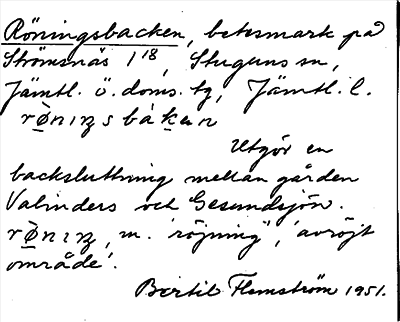 Röningsbacken, betesmark på
Strömsnäs 1¹⁸, Stuguns sn,
Jämtl. ö. doms. tg, Jämtl. l.
rø̀nıŋsbákɐn
Utgör en
backsluttning mellan gården
Valinders och Gesundsjön.
rø̀nıŋ, m. 'röjning', 'avröjt
område'.
Bertil Flemström 1951.